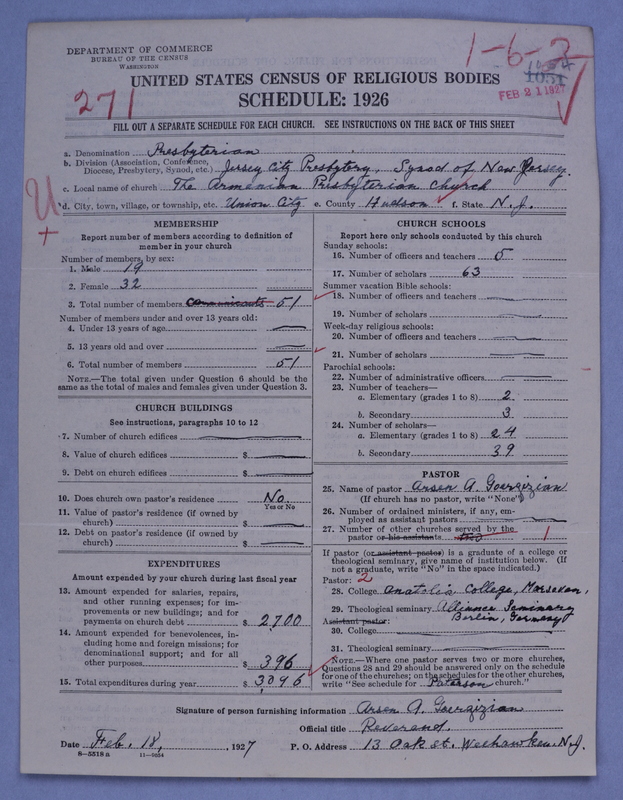 DEPARTMENT OF COMMERCE
BUREAU OF THE CENSUS
WASHINGTON
1-6-3
1051
FEB 21 1927
271
UNITED STATES CENSUS OF RELIGIOUS BODIES
SCHEDULE: 1926
FILL OUT A SEPARATE SCHEDULE FOR EACH CHURCH. SEE INSTRUCTIONS ON THE BACK OF THIS SHEET
a. Denomination Presbyterian
b. Division (Association, Conference, Diocese, Presbytery, Synod, etc.) Jersey City Presbytery, Synod of New Jersey.
c. Local name of church The Armenian Presbyterian Church
d. City, town, village, or township, etc. Union City e. County Hudson f. State N.J.
U
+
MEMBERSHIP
Report number of members according to definition of
member in your church
Number of members, by sex:
1. Male 19
2. Female 32
3. Total number of members communicants 51
Number of members under and over 13 years old:
4. Under 13 years of age
5. 13 years old and over
6. Total number of members 51
NOTE.—The total given under Question 6 should be the
same as the total of males and females given under Question 3.
CHURCH BUILDINGS
See instructions, paragraphs 10 to 12
7. Number of church edifices
8. Value of church edifices $
9. Debt on church edifices $
10. Does church own pastor's residence No
Yes or No
11. Value of pastor's residence (if owned by
church) $
12. Debt on pastor's residence (if owned by
church) $
EXPENDITURES
Amount expended by your church during last fiscal year
13. Amount expended for salaries, repairs,
and other running expenses; for im-
provements or new buildings; and for
payments on church debt $ 2,700
14. Amount expended for benevolences, in-
cluding home and foreign missions; for
denominational support; and for all
other purposes $ 396
15. Total expenditures during year $ 3,096
CHURCH SCHOOLS
Report here only schools conducted by this church
Sunday schools:
16. Number of officers and teachers 5
17. Number of scholars 63
Summer vacation Bible schools:
18. Number of officers and teachers
19. Number of scholars
Week-day religious schools:
20. Number of officers and teachers
21. Number of scholars
Parochial schools:
22. Number of administrative officers
23. Number of teachers—
a. Elementary (grades 1 to 8) 2
b. Secondary 3
24. Number of scholars—
a. Elementary (grades 1 to 8) 24
b. Secondary 39
PASTOR
25. Name of pastor Arsen A. Goergizian
(If church has no pastor, write "None")
26. Number of ordained ministers, if any, em-
ployed as assistant pastors
27. Number of other churches served by the
pastor or his assistants 1
If pastor (or assistant pastor) is a graduate of a college or
theological seminary, give name of institution below. (If
not a graduate, write "No" in the space indicated.)
Pastor: 2
28. College Anatolia College, Marsovan,
29. Theological seminary Alliance Seminary
Berlin, Germany
Assistant pastor:
30. College
31. Theological seminary
NOTE.—Where one pastor serves two or more churches,
Questions 28 and 29 should be answered only on the schedule
for one of the churches; on the schedules for the other churches,
write "See schedule for Paterson church."
Signature of person furnishing information Arsen A. Goergizian
Official title Reverend.
Date Feb. 18, 1927 P. O. Address 13 Oak st. Weehawken. N.J.
8—5518 a 11—9054